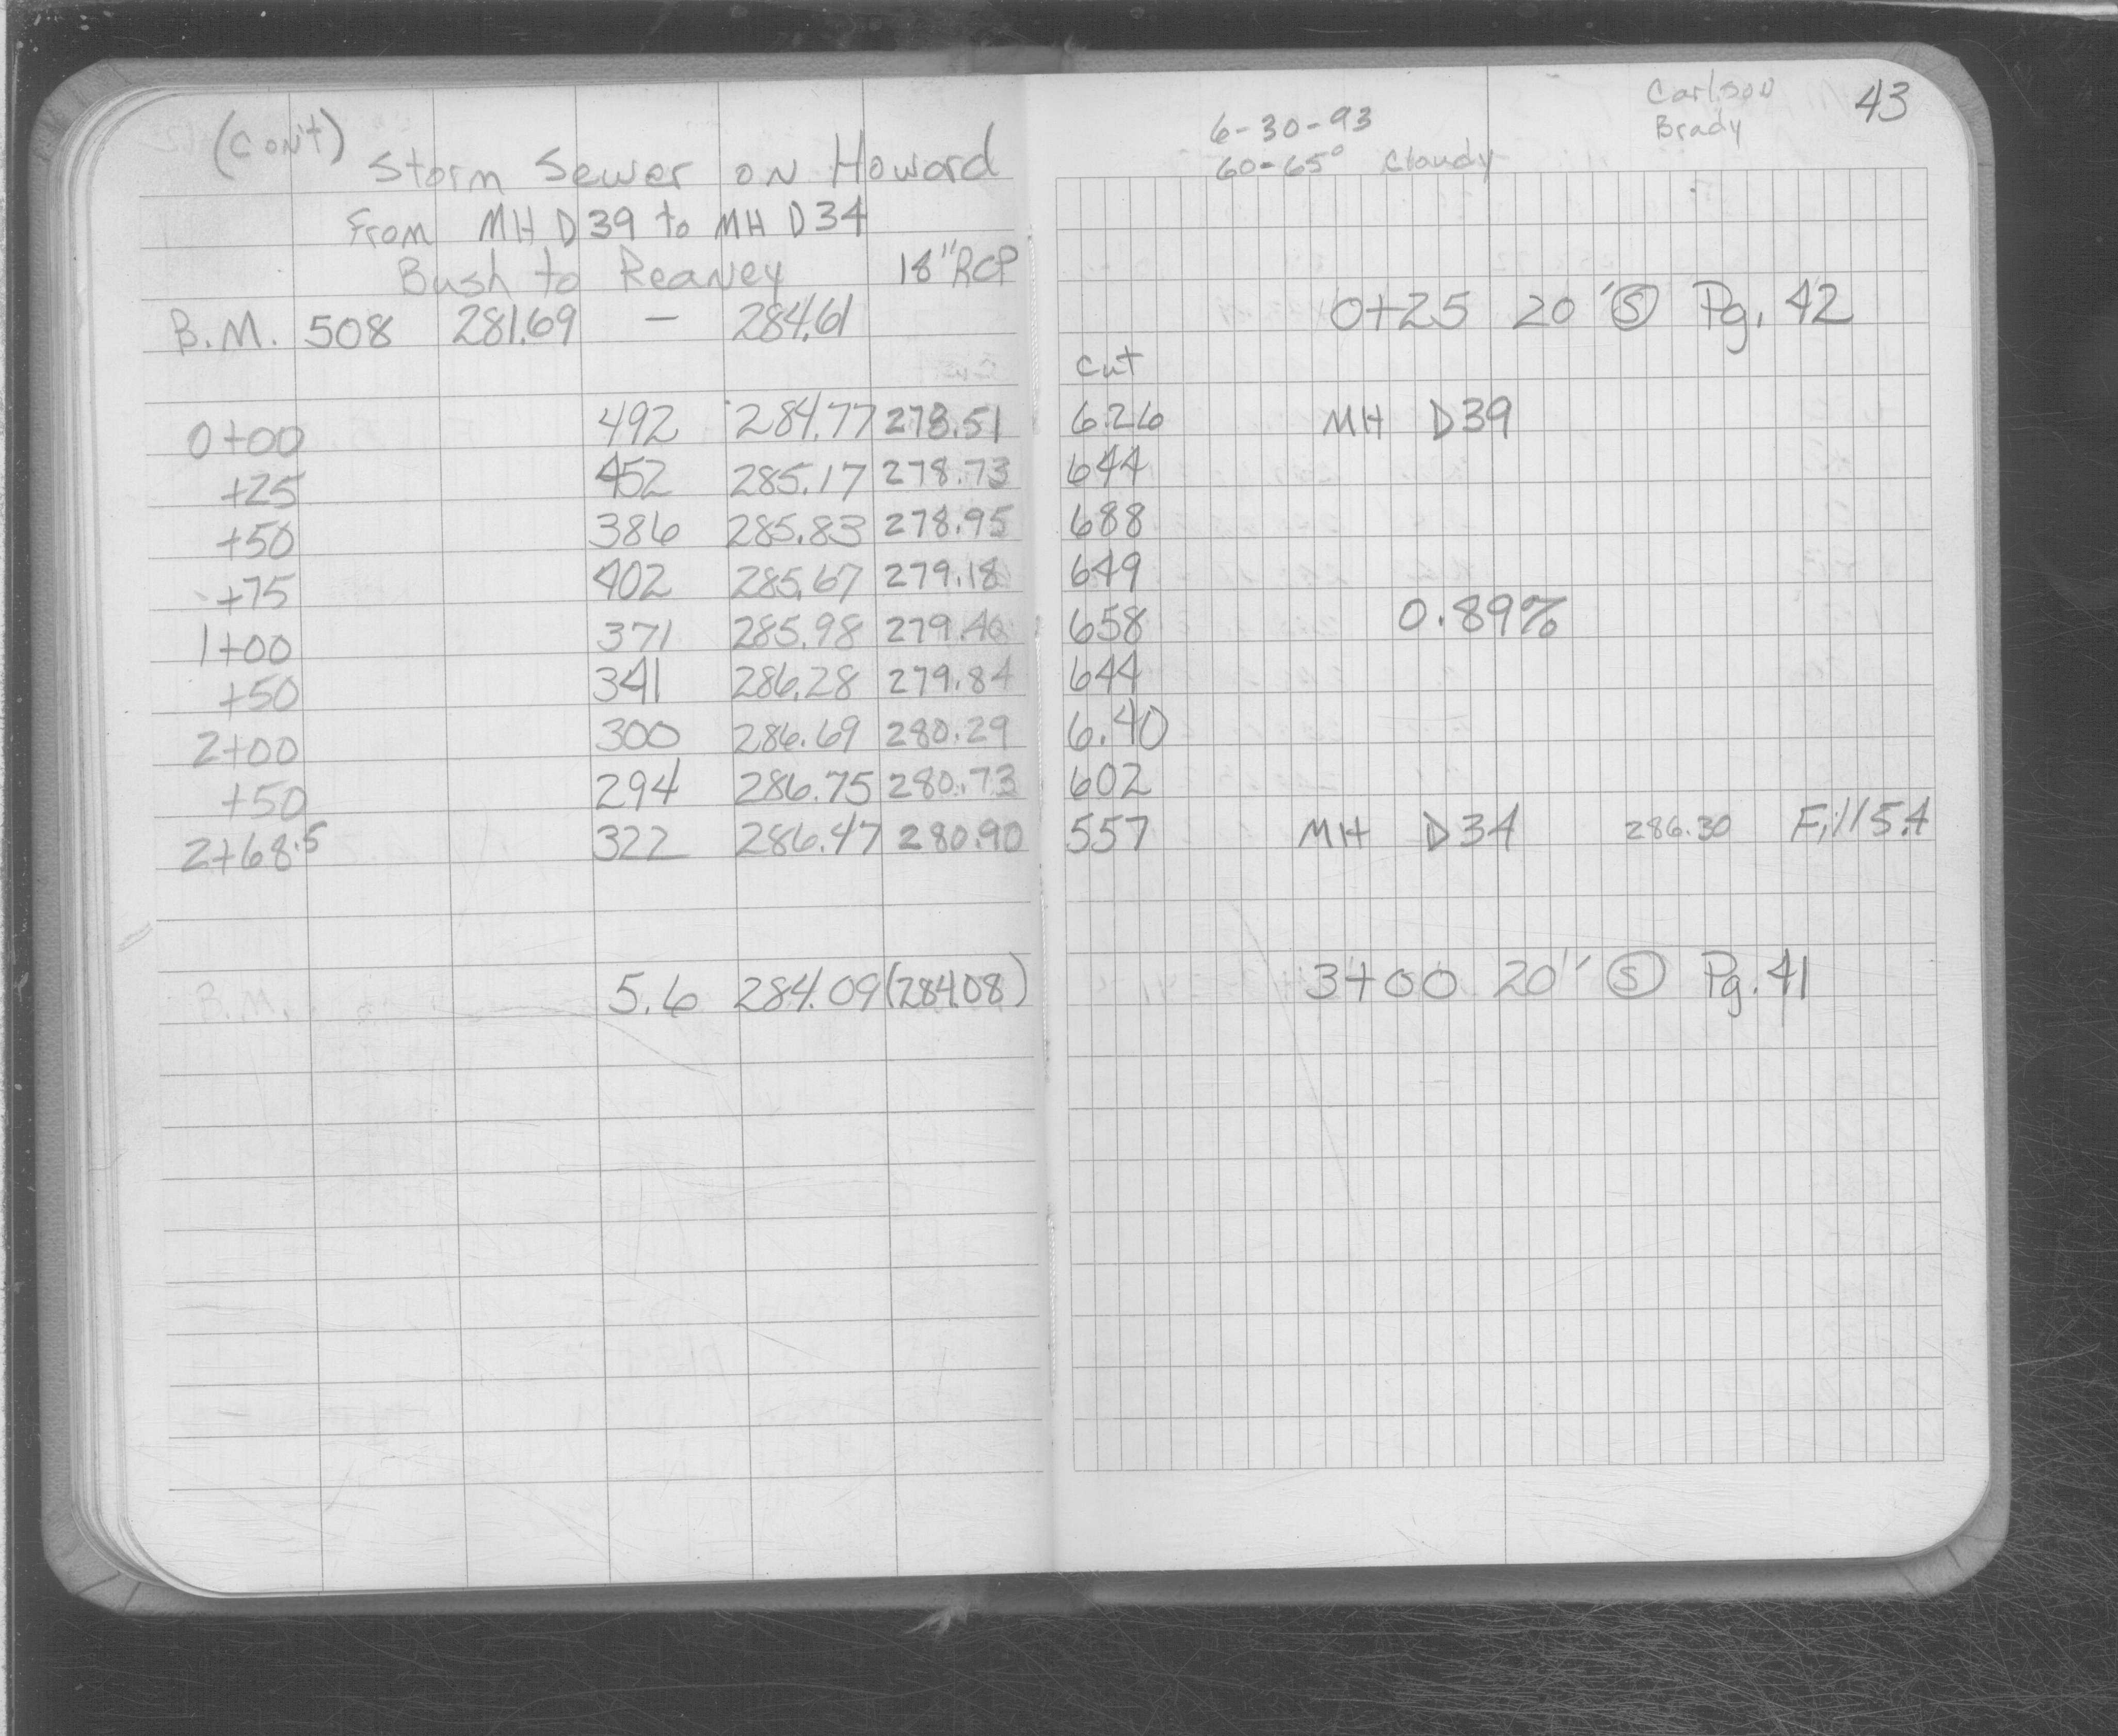 (Con't)
Storm Sewer on Howard
From MH D39 to MH D34
Bush to Reaney 18" RCP
B.M. 508 281.69 — 284.61
0+00 492 284.77 278.51
+25 452 285.17 278.73
+50 386 285.83 278.95
+75 402 285.67 279.18
1+00 371 285.98 279.40
+50 341 286.28 279.84
2+00 300 286.69 280.29
+50 294 286.75 280.73
2+68.5 322 286.47 280.90
B.M. 5.6 284.09 (284.08)
Carlson
Brady
43
6-30-93
60-65° Cloudy
0+25 20' Ⓢ Pg. 42
Cut
6.26 MH D39
644
688
649
658 0.89%
644
6.40
602
557 MH D34 286.30 Fill 5.4
3+00 20' Ⓢ Pg. 41